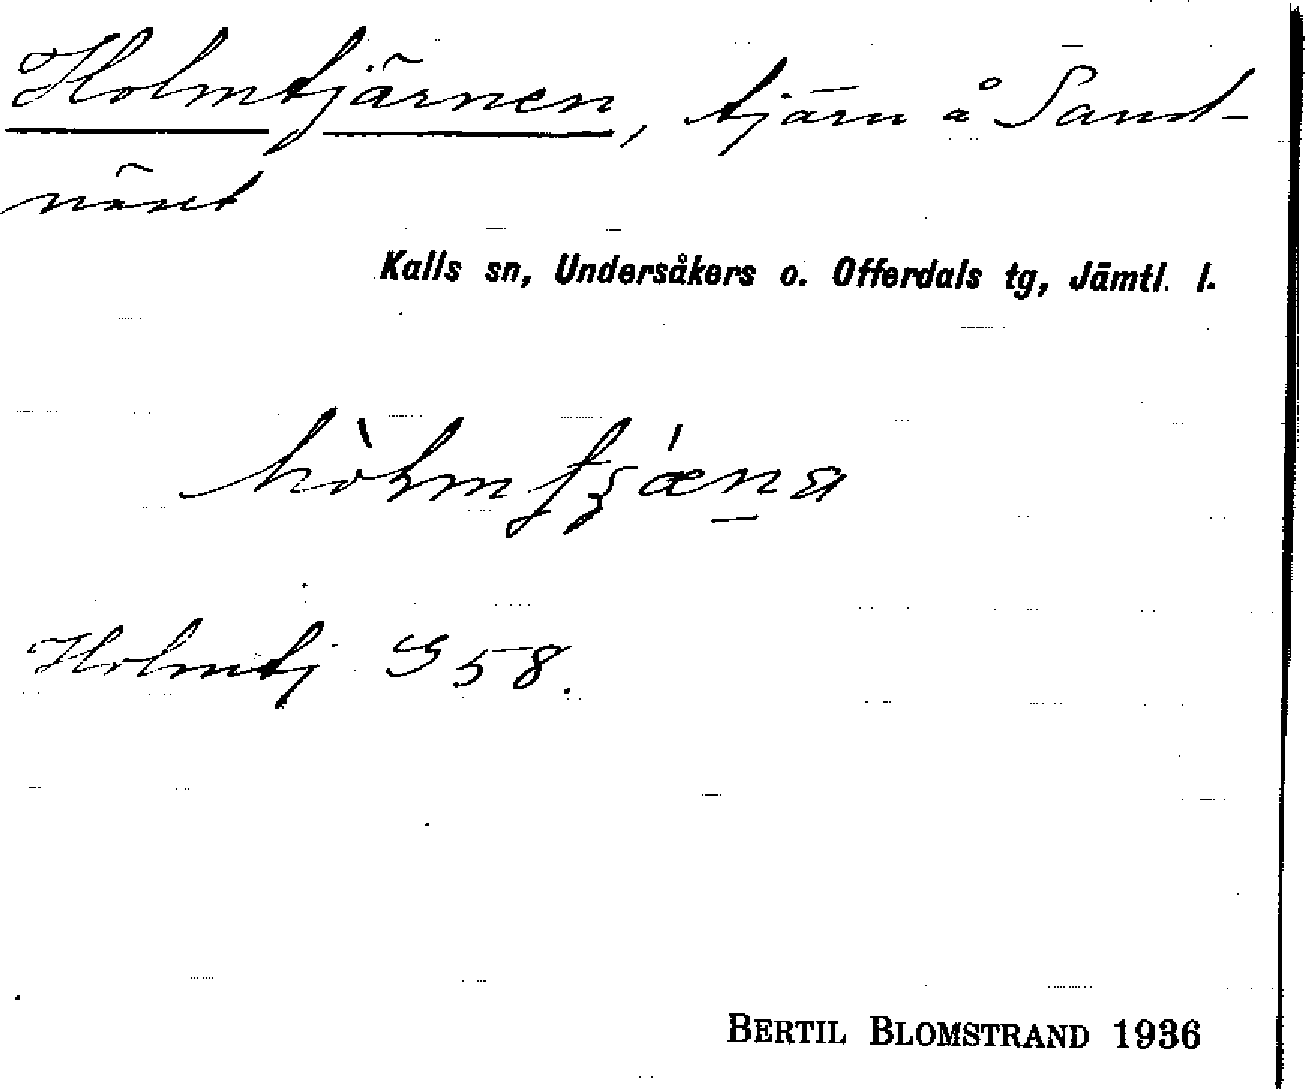 Holmtjärnen, tjärn å Sand-
näset
Kalls sn, Undersåkers o. Offerdals tg, Jämtl. l.
Holmtj G 58.
BERTIL BLOMSTRAND 1936